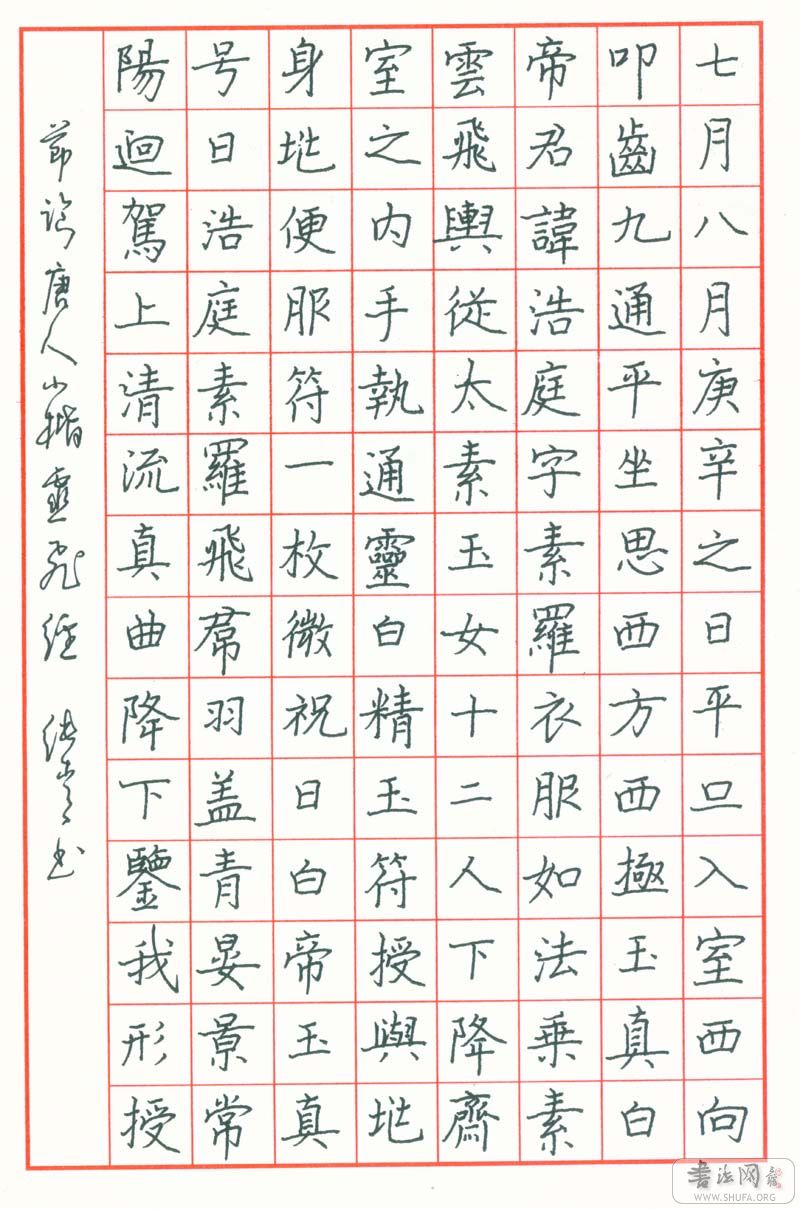 七月八月庚辛之日平旦入室西向
叩齒九通平坐思西方西極玉真白
帝君諱浩庭字素羅衣服如法乗素
雲飛輿從太素玉女十二人下降齋
室之内手執通靈白精玉符授與垗
身垗便服符一枚微祝曰白帝玉真
号曰浩庭素羅飛帬羽盖青晏景常
陽迴駕上清流真曲降下鑒我形授
節臨唐人小楷靈飛經 書
書法网
WWW.SHUFA.ORG